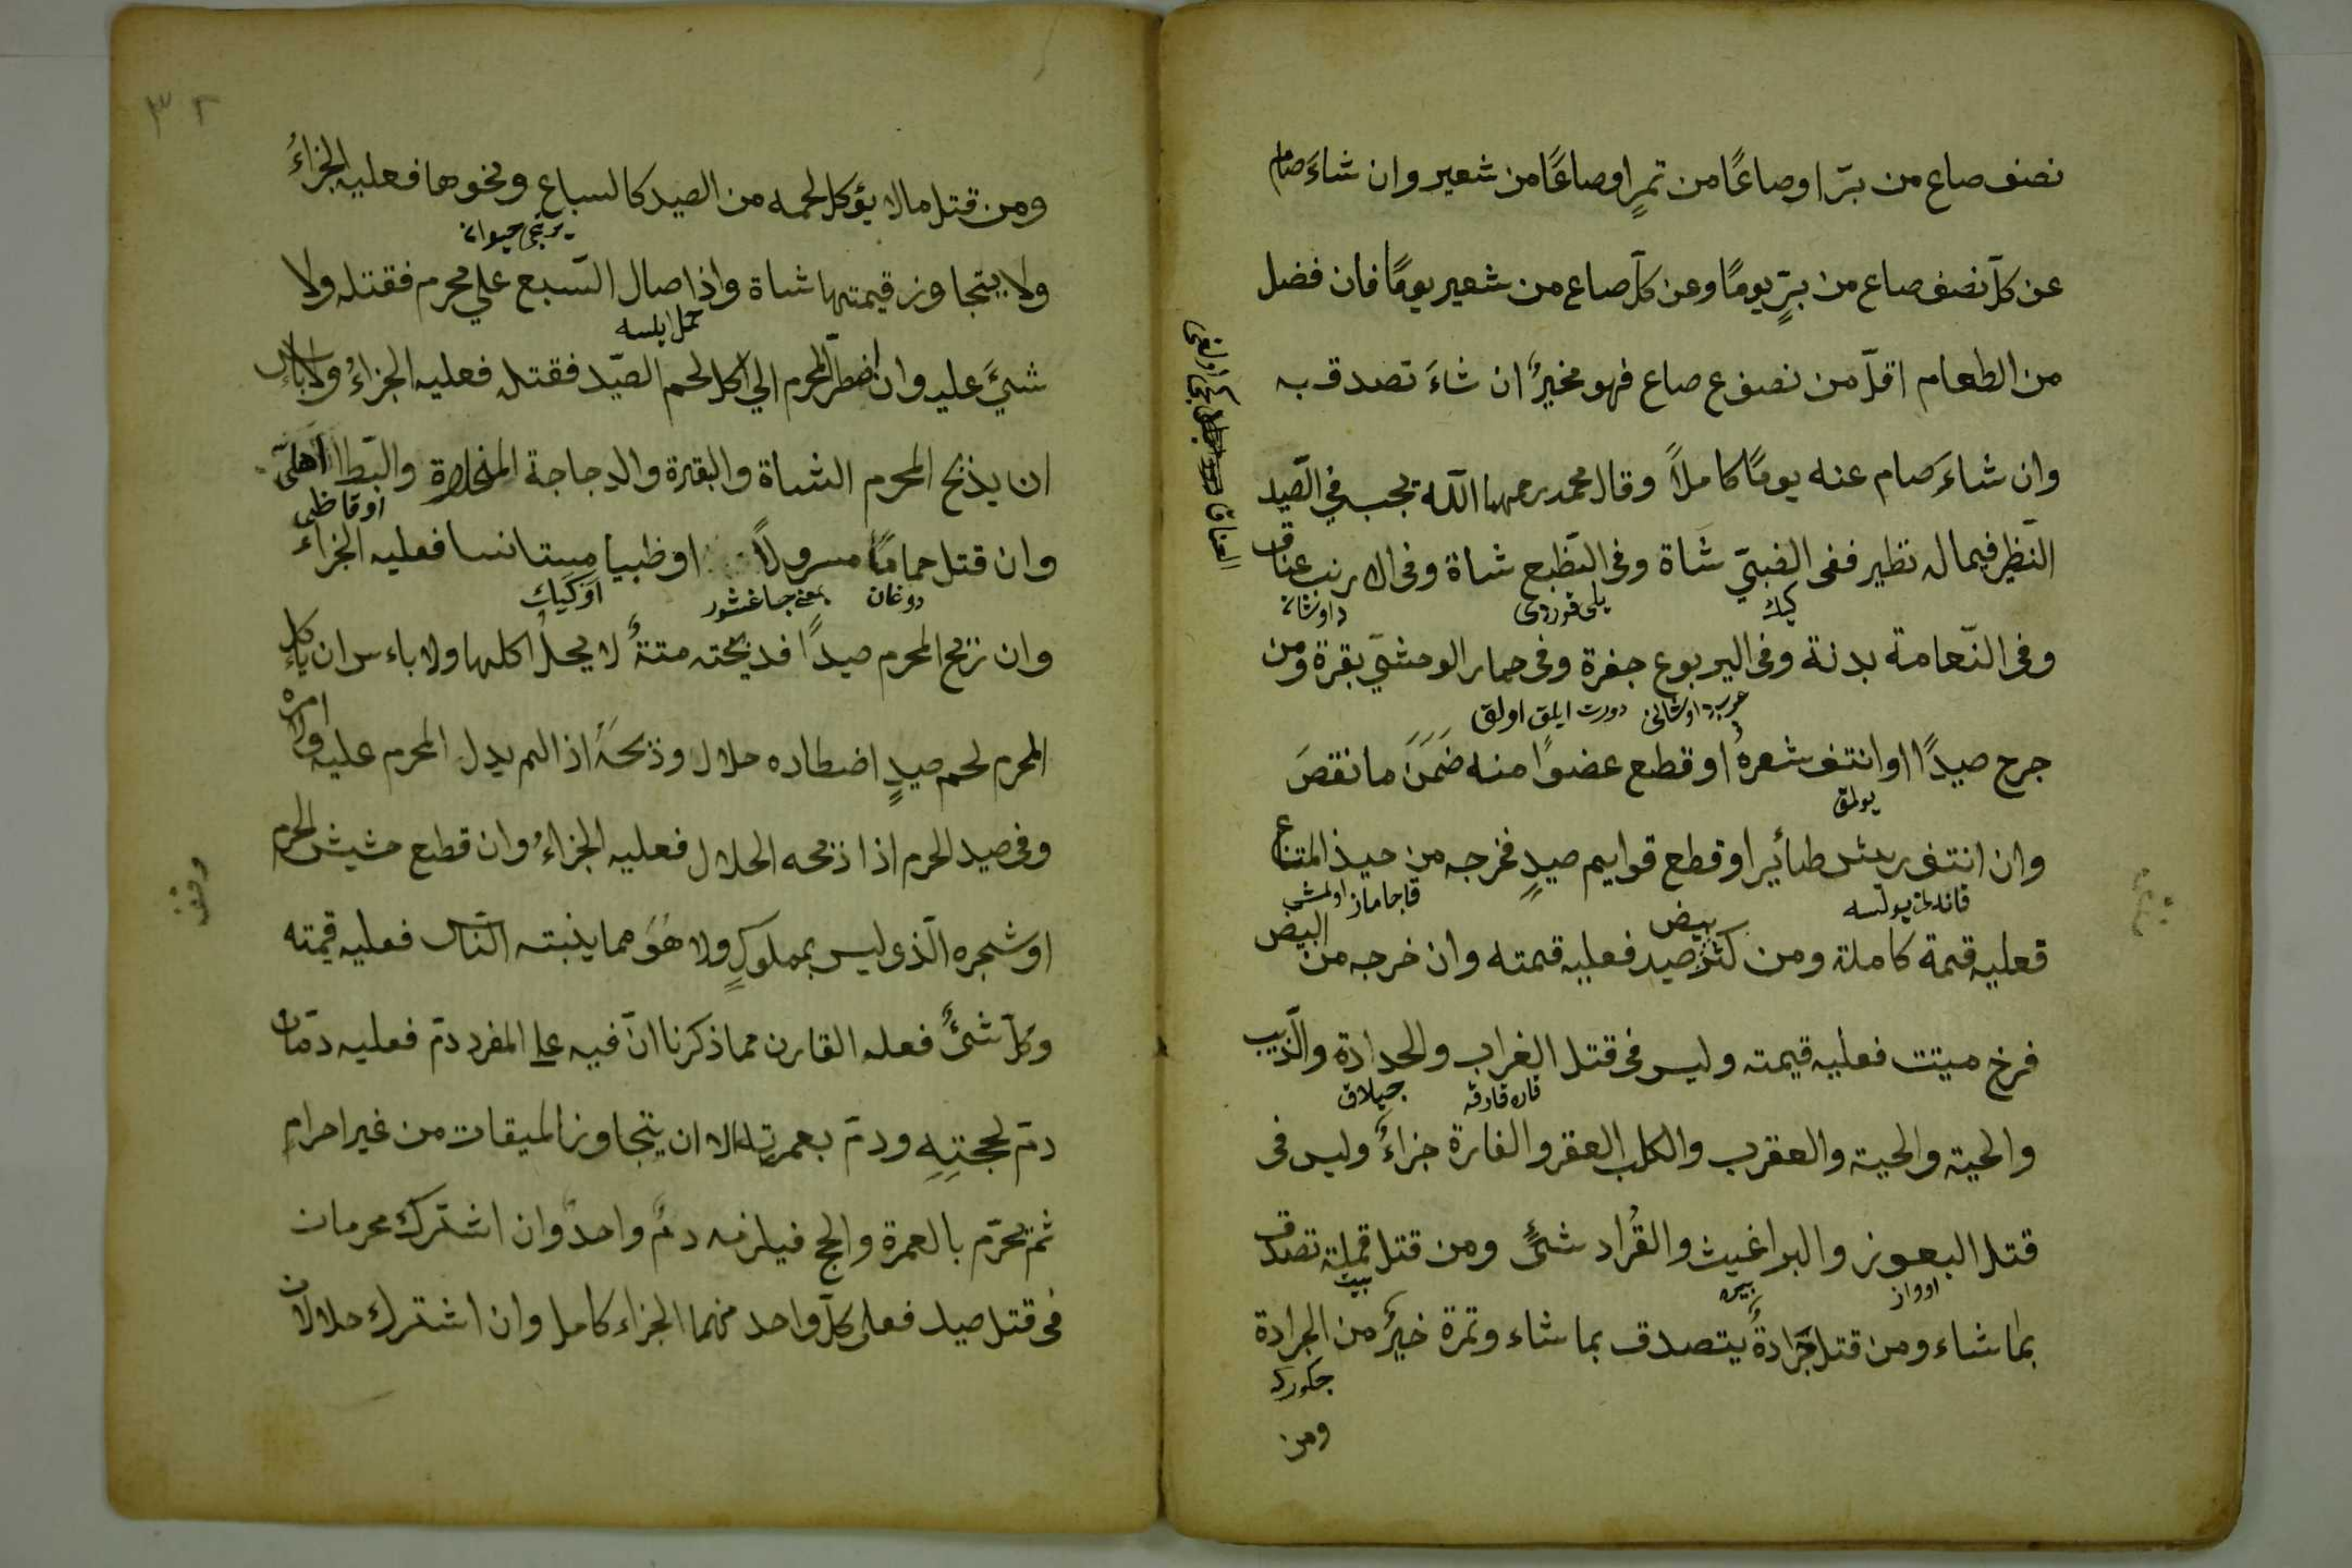 نصف صاع من برّ او صاعًا من تمرٍ او صاعًا من شعير وان شاءَ صام
عن كلّ نصف صاع من برٍّ يومًا وعن كلّ صاع من شعير يومًا فان فضل
من الطعام اقلّ من نصف ع صاع فهو مخيرٌ ان شاءَ تصدق به
وان شاءَ صام عنه يومًا كاملاً وقال محمد رحمهما اللّه يجب في الصّيد
النّظير فيما له نظير ففى الضبّي شَاة وفى الضّبع شاة وفى الارنب عناق
كيك
داوشان
وفى النّعامة بدنة وفى اليربوع جفرة وفى حمار الوحشيّ بقرة ومن
عرب داوشانى دورت ايلق اولق
جرح صيدًا او انتف شعره او قطع عضوًا منه ضَمَنَ ما نقصَ
يولمق
وان انتف ريش طائير او قطع قوايم صيدٍ فخرجه من حيذ المتناع
قنادن يولسه
قاجاماز اولمش
فعليه قمة كاملة ومن كثر بيض صيد فعليه قمته وان خرجه من البيض
فرخ ميتت فعليه قيمته وليس فى قتل الغراب والحدادة والذّيب
قاره قارقه
جيلاق
والحية والحية والعقرب والكلب العقر والفارة جزاءٌ وليس فى
قتل البعوز والبراغيث والقُراد شئٌ ومن قتل قملة تصدق
بيت
بما شاء ومن قتل جَرَادةً يتصدق بما شاء وتمرة خيرٌ من الجرادة
جكورك
ومن
٣٢
ومن قتل مالا يؤكل لحمه من الصيد كالسباع ونحوها فعليه الجزاءُ
يرتجى حيوان
ولا يتجاوز قيمتها شاة واذا صال السّبع علي محرم فقتله ولا
حمل ايلسه
شئَ عليه وان اضطرّ المحرم الي اكل لحم الصّيد فقتله فعليه الجزاءُ ولا بأس
ان يذبح المحرم الشاة والبقرة والدجاجة والبّط الاهلىّ
وان قتل حمامًا مسرولاً او ظبيا مستانسا فعليه الجزاء
دوغان
بعنى جاغشور
او كيك
وان زبح المحرم صيدًا فذبيحته متتةٌ لا يحلُ اكلها ولا باءس ان ياءكل
المحرم لحم صيدٍ اضطاده حلال وذبحَهُ اذا لم يدل المحرم عليه ولا امره
وفى صيد الحرم اذا ذبحه الحلال فعليه الجزاءُ وان قطع حشيش الحرم
وقف
او شجره الّذى ليس بمملوكٍ ولا هَوُ مما ينبته النّاس فعليه قيمته
وكلّ شئٌ فعله القارن مما ذكرنا انّ فيه علي المفرد دمّ فعليه دمّان
دمّ لحجتِهِ ودمّ بعمرته الا ان يتجاوز الميقات من غير احرامٍ
ثمّ يحرّم بالعمرة والحج فيلزمه دمٌ واحدٌ وان اشترك محرمان
فى قتل صيد فعلى كلّ واحد منهما الجزاء كامل وان اشترك حلالان